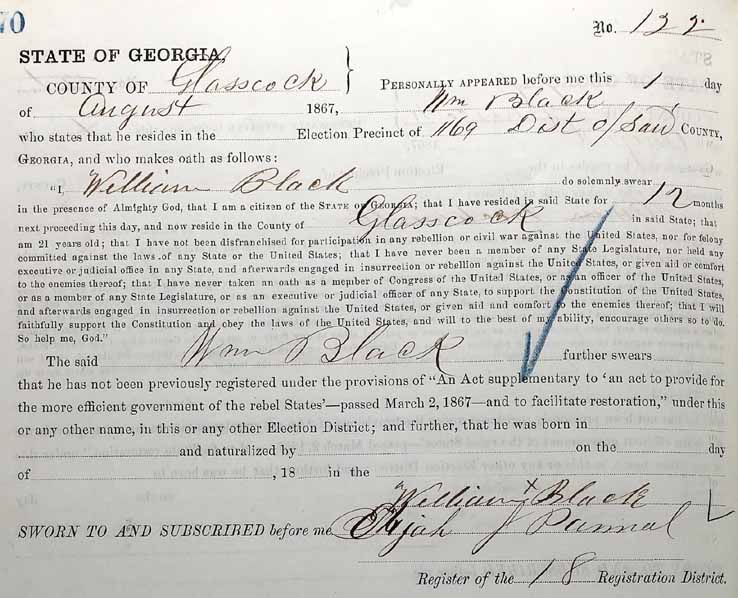 70
No. 132
STATE OF GEORGIA,
COUNTY OF Glasscock } PERSONALLY APPEARED before me this 1 day
of August 1867, Wm Black
who states that he resides in the Election Precinct of 1169 Dist of said COUNTY,
GEORGIA, and who makes oath as follows:
"I, William Black do solemnly swear
in the presence of Almighty God, that I am a citizen of the STATE OF GEORGIA; that I have resided in said State for 12 months
next preceeding this day, and now reside in the County of Glasscock in said State; that
am 21 years old; that I have not been disfranchised for participation in any rebellion or civil war against the United States, nor for felony
committed against the laws of any State or the United States; that I have never been a member of any State Legislature, nor held any
executive or judicial office in any State, and afterwards engaged in insurrection or rebellion against the United States, or given aid or comfort
to the enemies thereof; that I have never taken an oath as a member of Congress of the United States, or as an officer of the United States,
or as a member of any State Legislature, or as an executive or judicial officer of any State, to support the Constitution of the United States,
and afterwards engaged in insurrection or rebellion against the United States, or given aid and comfort to the enemies thereof; that I will
faithfully support the Constitution and obey the laws of the United States, and will to the best of my ability, encourage others so to do.
So help me, God."
The said Wm Black further swears
that he has not been previously registered under the provisions of "An Act supplementary to 'an act to provide for
the more efficient government of the rebel States'—passed March 2, 1867—and to facilitate restoration," under this
or any other name, in this or any other Election District; and further, that he was born in
and naturalized by on the day
of , 18 in the
William x Black
SWORN TO AND SUBSCRIBED before me Elijah J
Register of the 18 Registration District.